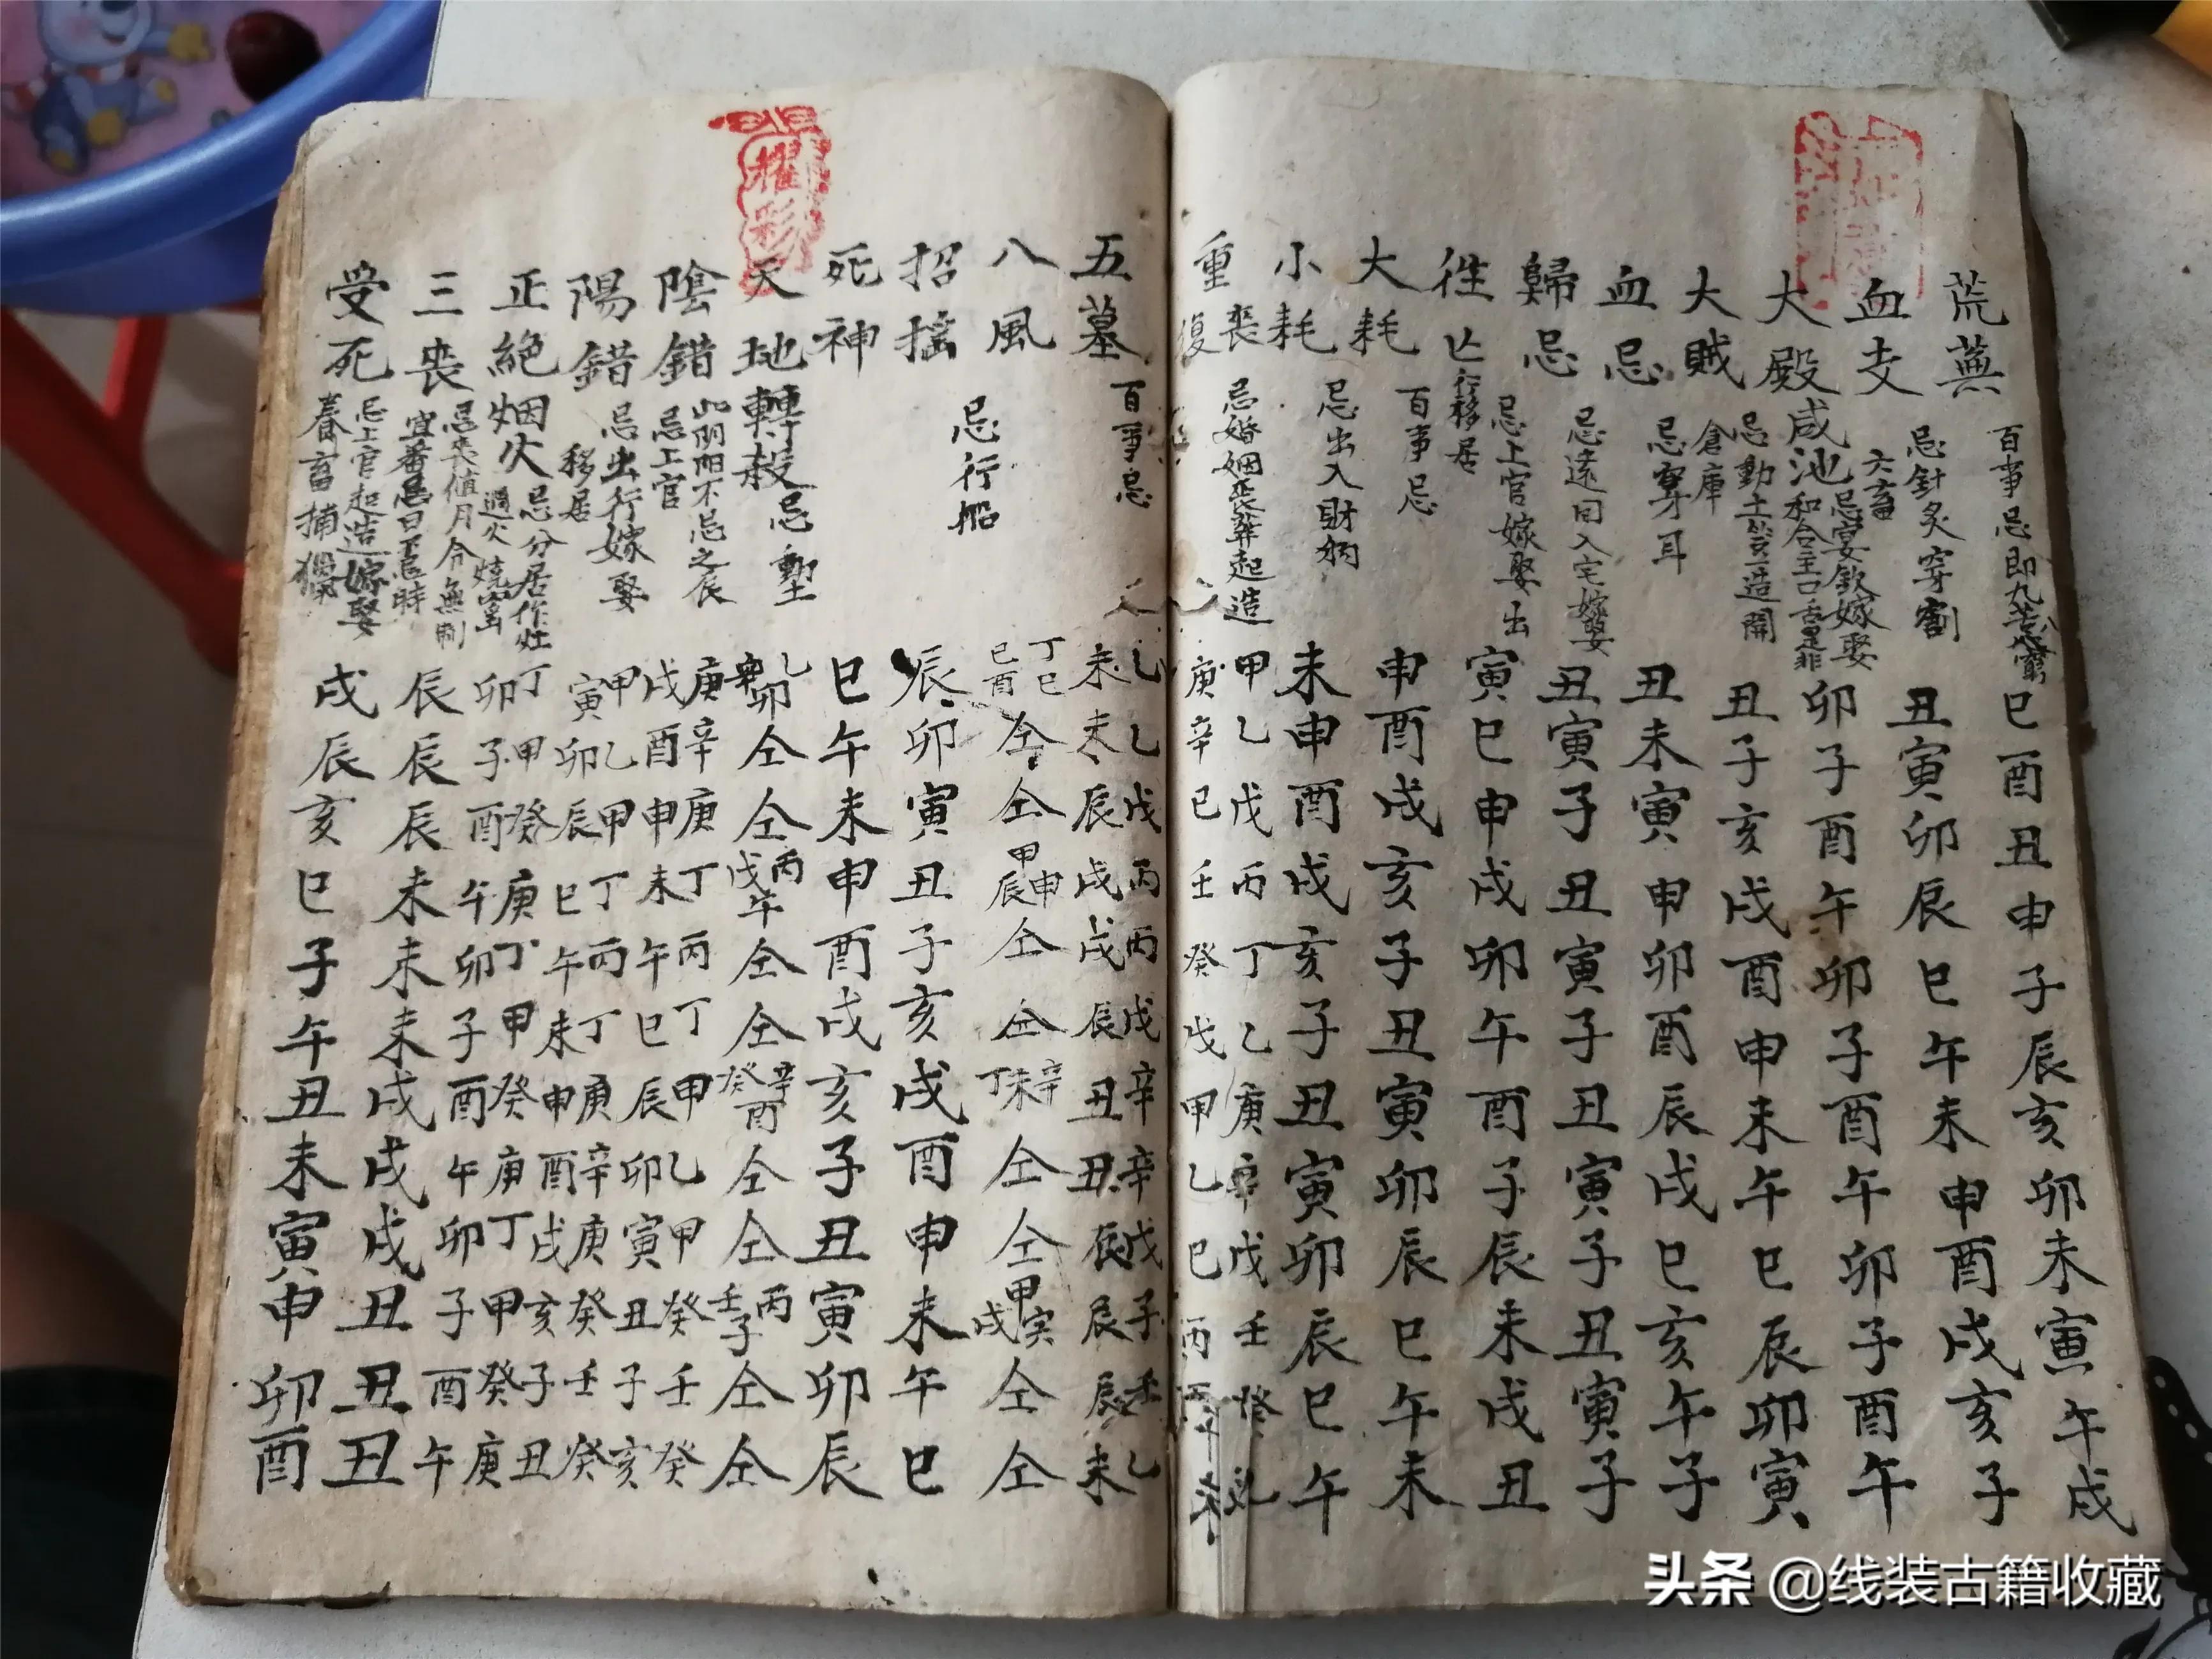 荒蕪 百事忌即九苦八窮 巳酉丑申子辰亥卯未寅午戌
血支 忌針灸穿割六畜 丑寅卯辰巳午未申酉戌亥子
大殿 咸池 忌宴飲嫁娶和合主口舌是非 卯子酉午卯子酉午卯子酉午
大賊 忌動土竪造開倉庫 丑子亥戌酉申未午巳辰卯寅
血忌 忌穿耳 丑未寅申卯酉辰戌巳亥午子
歸忌 忌遠回入宅嫁娶 丑寅子丑寅子丑寅子丑寅子
徃亡 忌上官嫁娶出行移居 寅巳申戌卯午酉子辰未戌丑
大耗 百事忌 申酉戌亥子丑寅卯辰巳午未
小耗 忌出入財物 未申酉戌亥子丑寅卯辰巳午
重喪 忌婚姻喪葬起造 甲乙戊丙丁乙庚辛戊壬癸
復 庚辛巳壬癸戊甲乙巳丙
五墓 百事忌 乙乙戊丙丙戊辛辛戊子壬乙
未未辰戌戌辰丑丑辰辰辰未
八風 忌行船 丁巳己酉仝仝甲申辰仝仝辛未丁仝仝甲寅戌仝仝
招摇 辰卯寅丑子亥戌酉申未午巳
死神 巳午未申酉戌亥子丑寅卯辰
天地轉殺 忌動土 乙卯辛仝仝丙午戊仝仝辛酉癸仝仝丙子壬仝仝
陰錯 此阴阳不忌之辰忌上官 庚辛庚丁丙丁甲乙甲癸壬癸
戌酉申未午巳辰卯寅丑子亥
陽錯 忌出行嫁娶移居 甲乙甲丁丙丁庚辛庚癸壬癸
寅卯辰巳午未申酉戌亥子丑
正絕烟火 忌分居作灶過火燒窑 丁甲癸庚丁甲癸庚丁甲癸庚
卯子酉午卯子酉午卯子酉午
三喪 忌喪值月令無制宜番忌日不忌時 辰辰辰未未未戌戌戌丑丑丑
受死 忌上官起造嫁娶養畜捕獵 戌辰亥巳子午丑未寅申卯酉
耀彩
头条 @线装古籍收藏